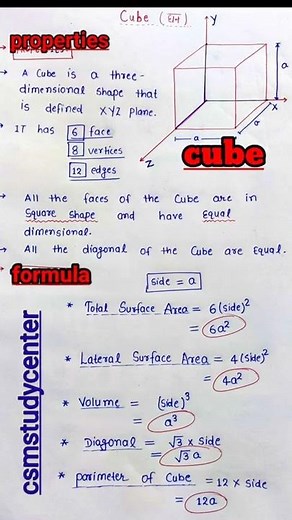 Cube (घन)
properties
→ A Cube is a three-
dimensional shape that
is defined XYZ plane.
→ IT has 6 face
8 vertices
12 edges
Y
a
X
a
a
Z
cube
→ All the faces of the Cube are in
Square shape and have Equal
dimensional.
→ All the diagonal of the Cube are Equal.
formula
side = a
* Total Surface Area = 6(side)²
= 6a²
* Lateral Surface Area = 4(side)²
= 4a²
* Volume = (side)³
= a³
* Diagonal = √3 × side
= √3 a
* parimeter of Cube = 12 × side
= 12a
csmstudycenter